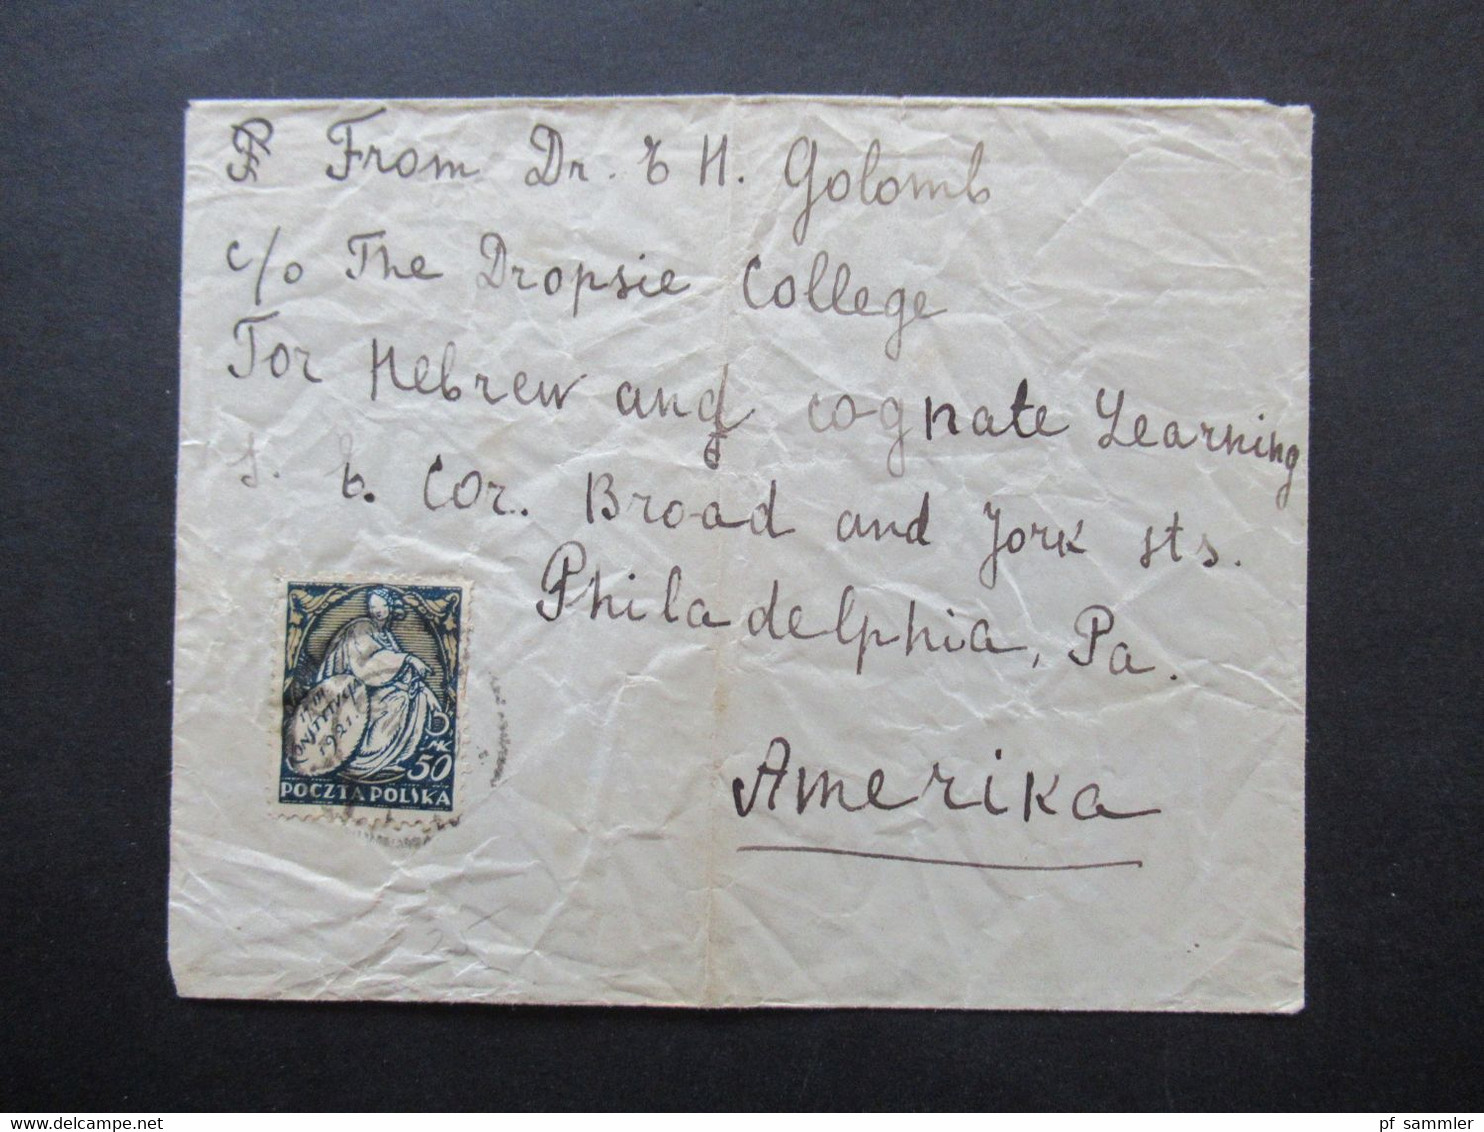 From Dr. E H. Golomb
c/o The Dropsie College
For Hebrew and cognate Learning
Cor. Broad and York sts.
Philadelphia, Pa.
Amerika
KONSTYTUCJA
1921
MK
50
POCZTA POLSKA
pf_sammler